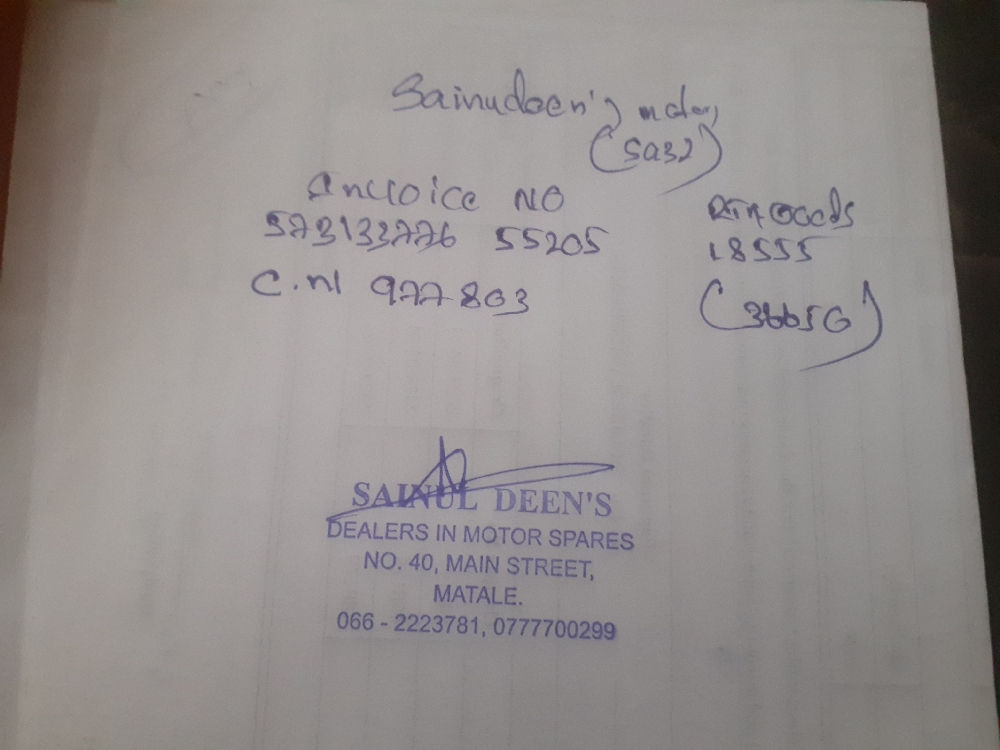 Sainudeen's motors
(SA32)
Invoice NO
573133776 55205
C.N 977803
RTN Goods
18555
(36650)
SAINUL DEEN'S
DEALERS IN MOTOR SPARES
NO. 40, MAIN STREET,
MATALE.
066 - 2223781, 0777700299